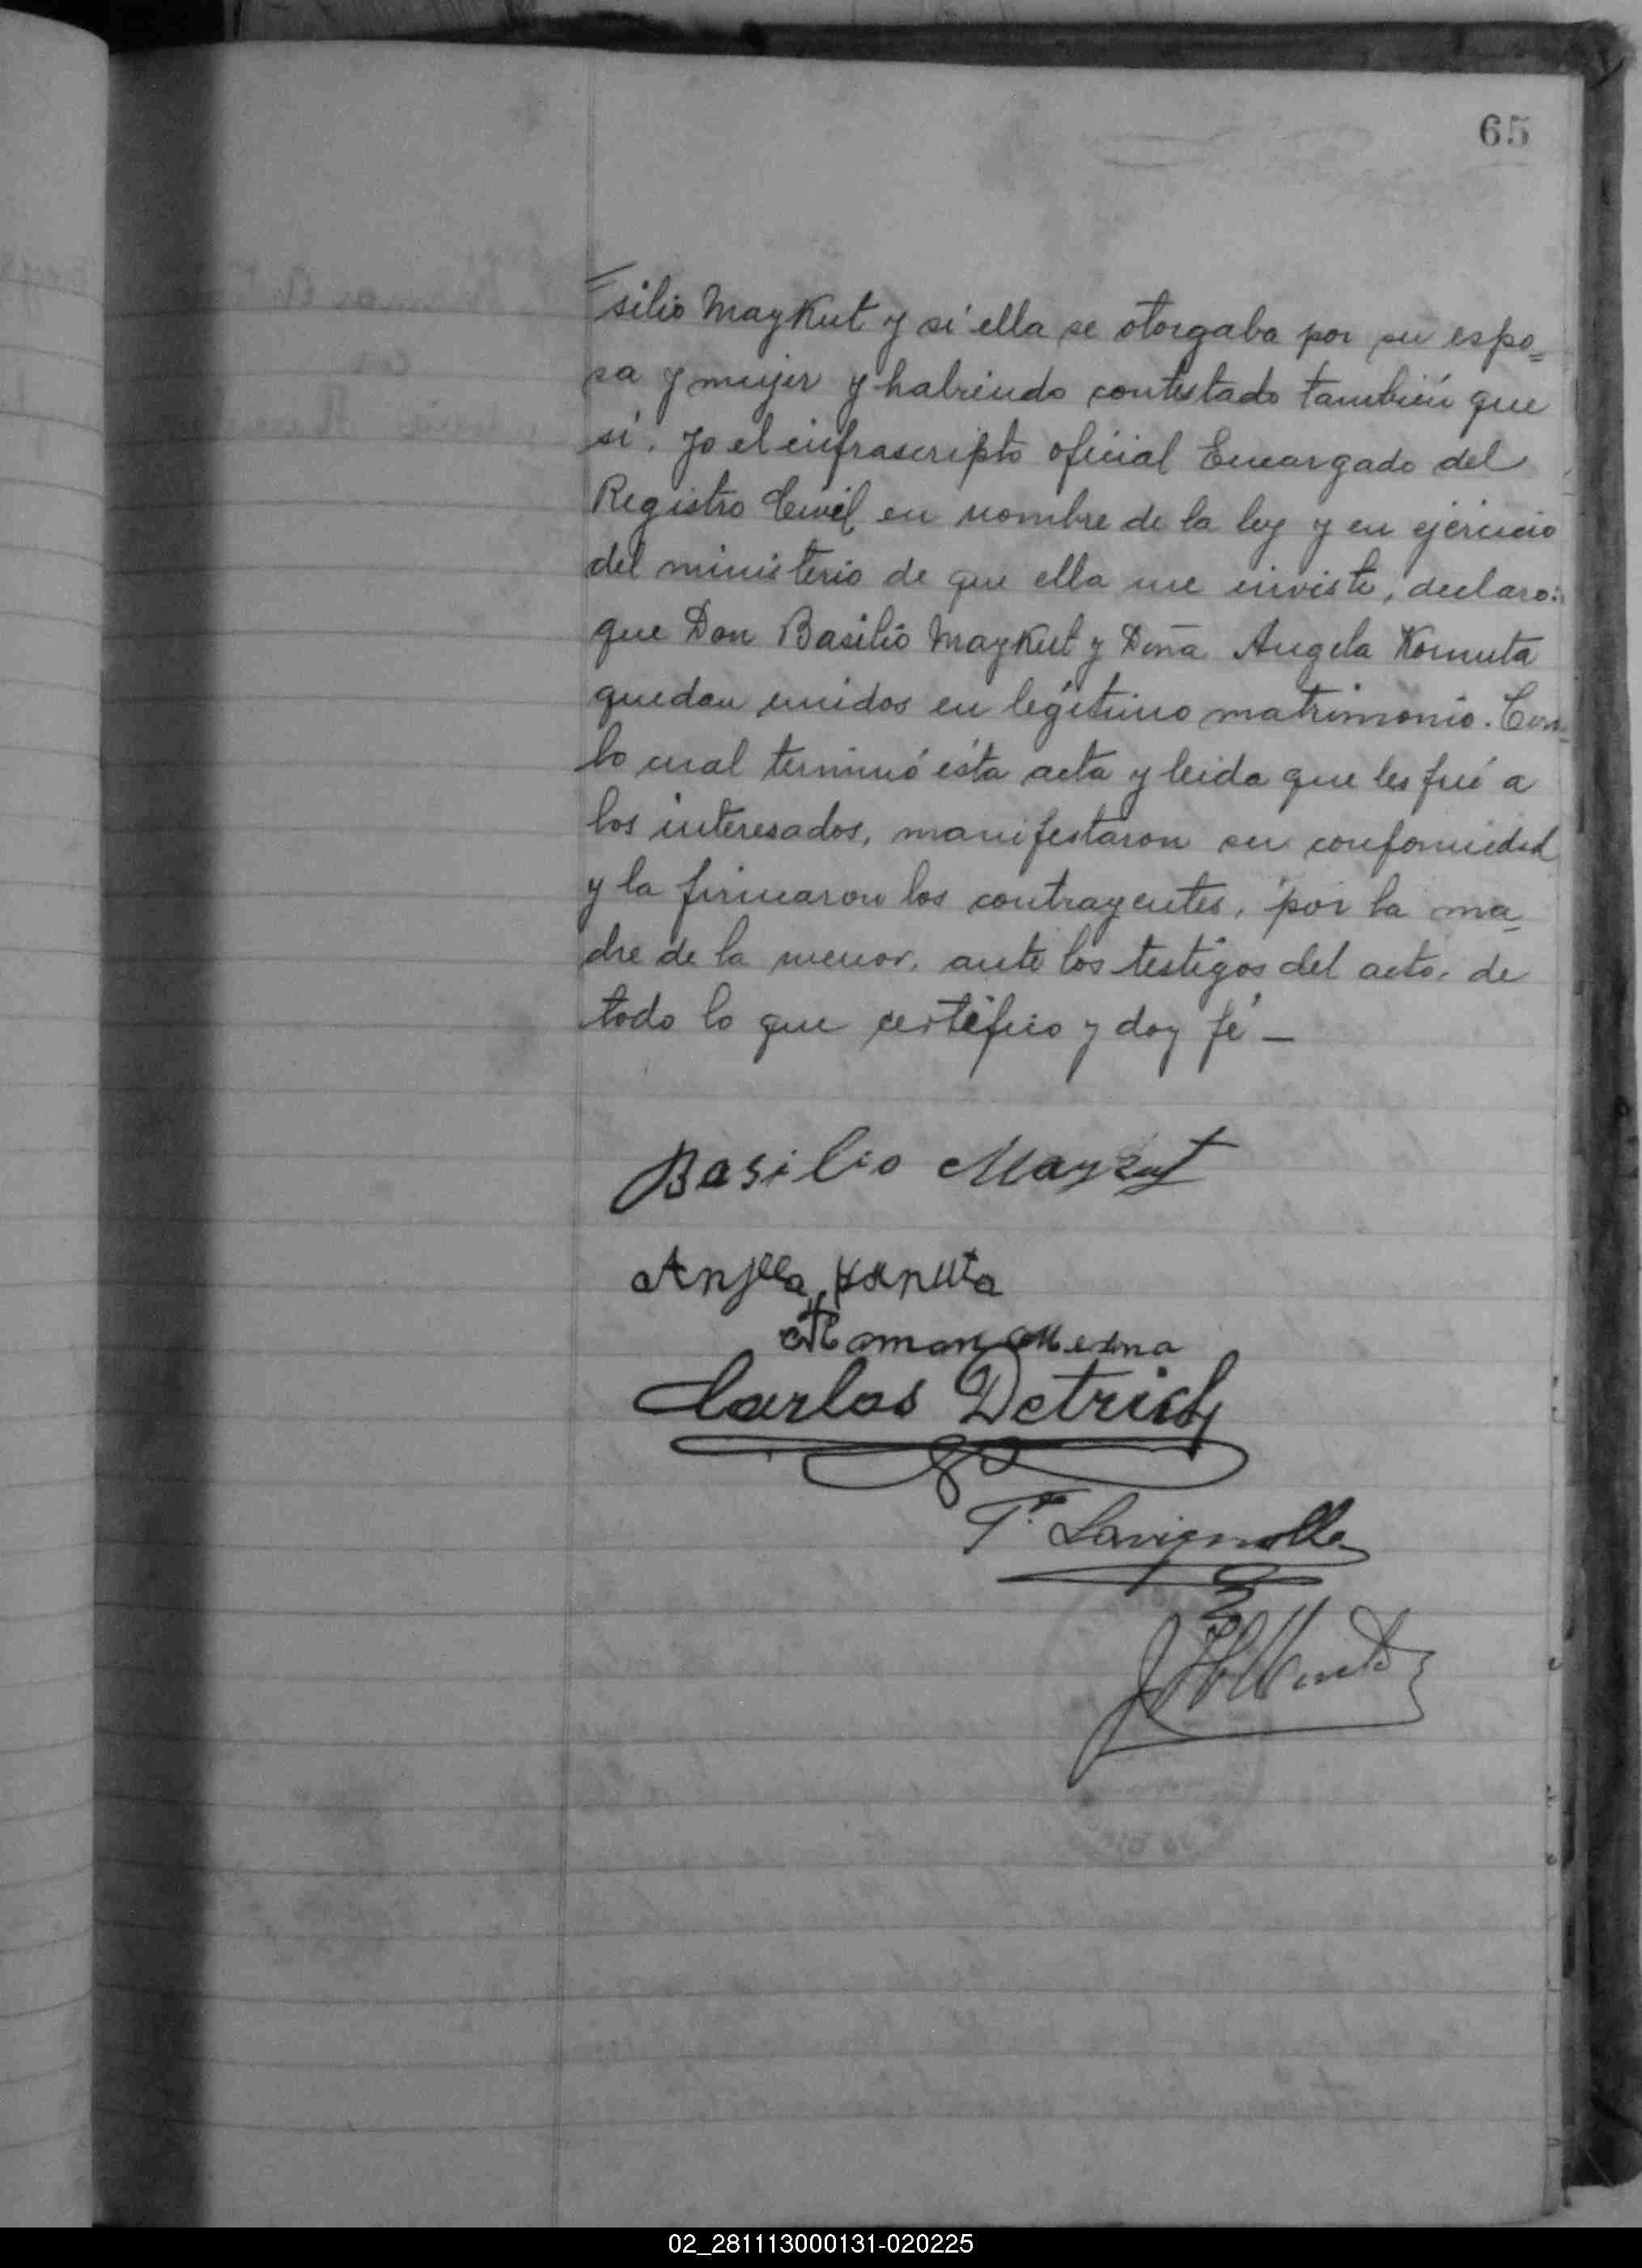 65
=silio Maykut y si ella se otorgaba por su espo=
sa y mujer y habiendo contestado también que
sí. Yo el infrascripto oficial Encargado del
Registro Civil, en nombre de la ley y en ejercicio
del ministerio de que ella me inviste, declaro:
que Don Basilio Maykut y Doña Angela Kornuta
quedan unidos en legítimo matrimonio. Con
lo cual terminó ésta acta y leida que les fué a
los interesados, manifestaron su conformidad
y la firmaron los contrayentes, por la ma=
dre de la menor, ante los testigos del acto, de
todo lo que certifico y doy fé —
Basilio Maykut
Anjela
Roman
Carlos Detrich
Lavignolle
02_281113000131-020225